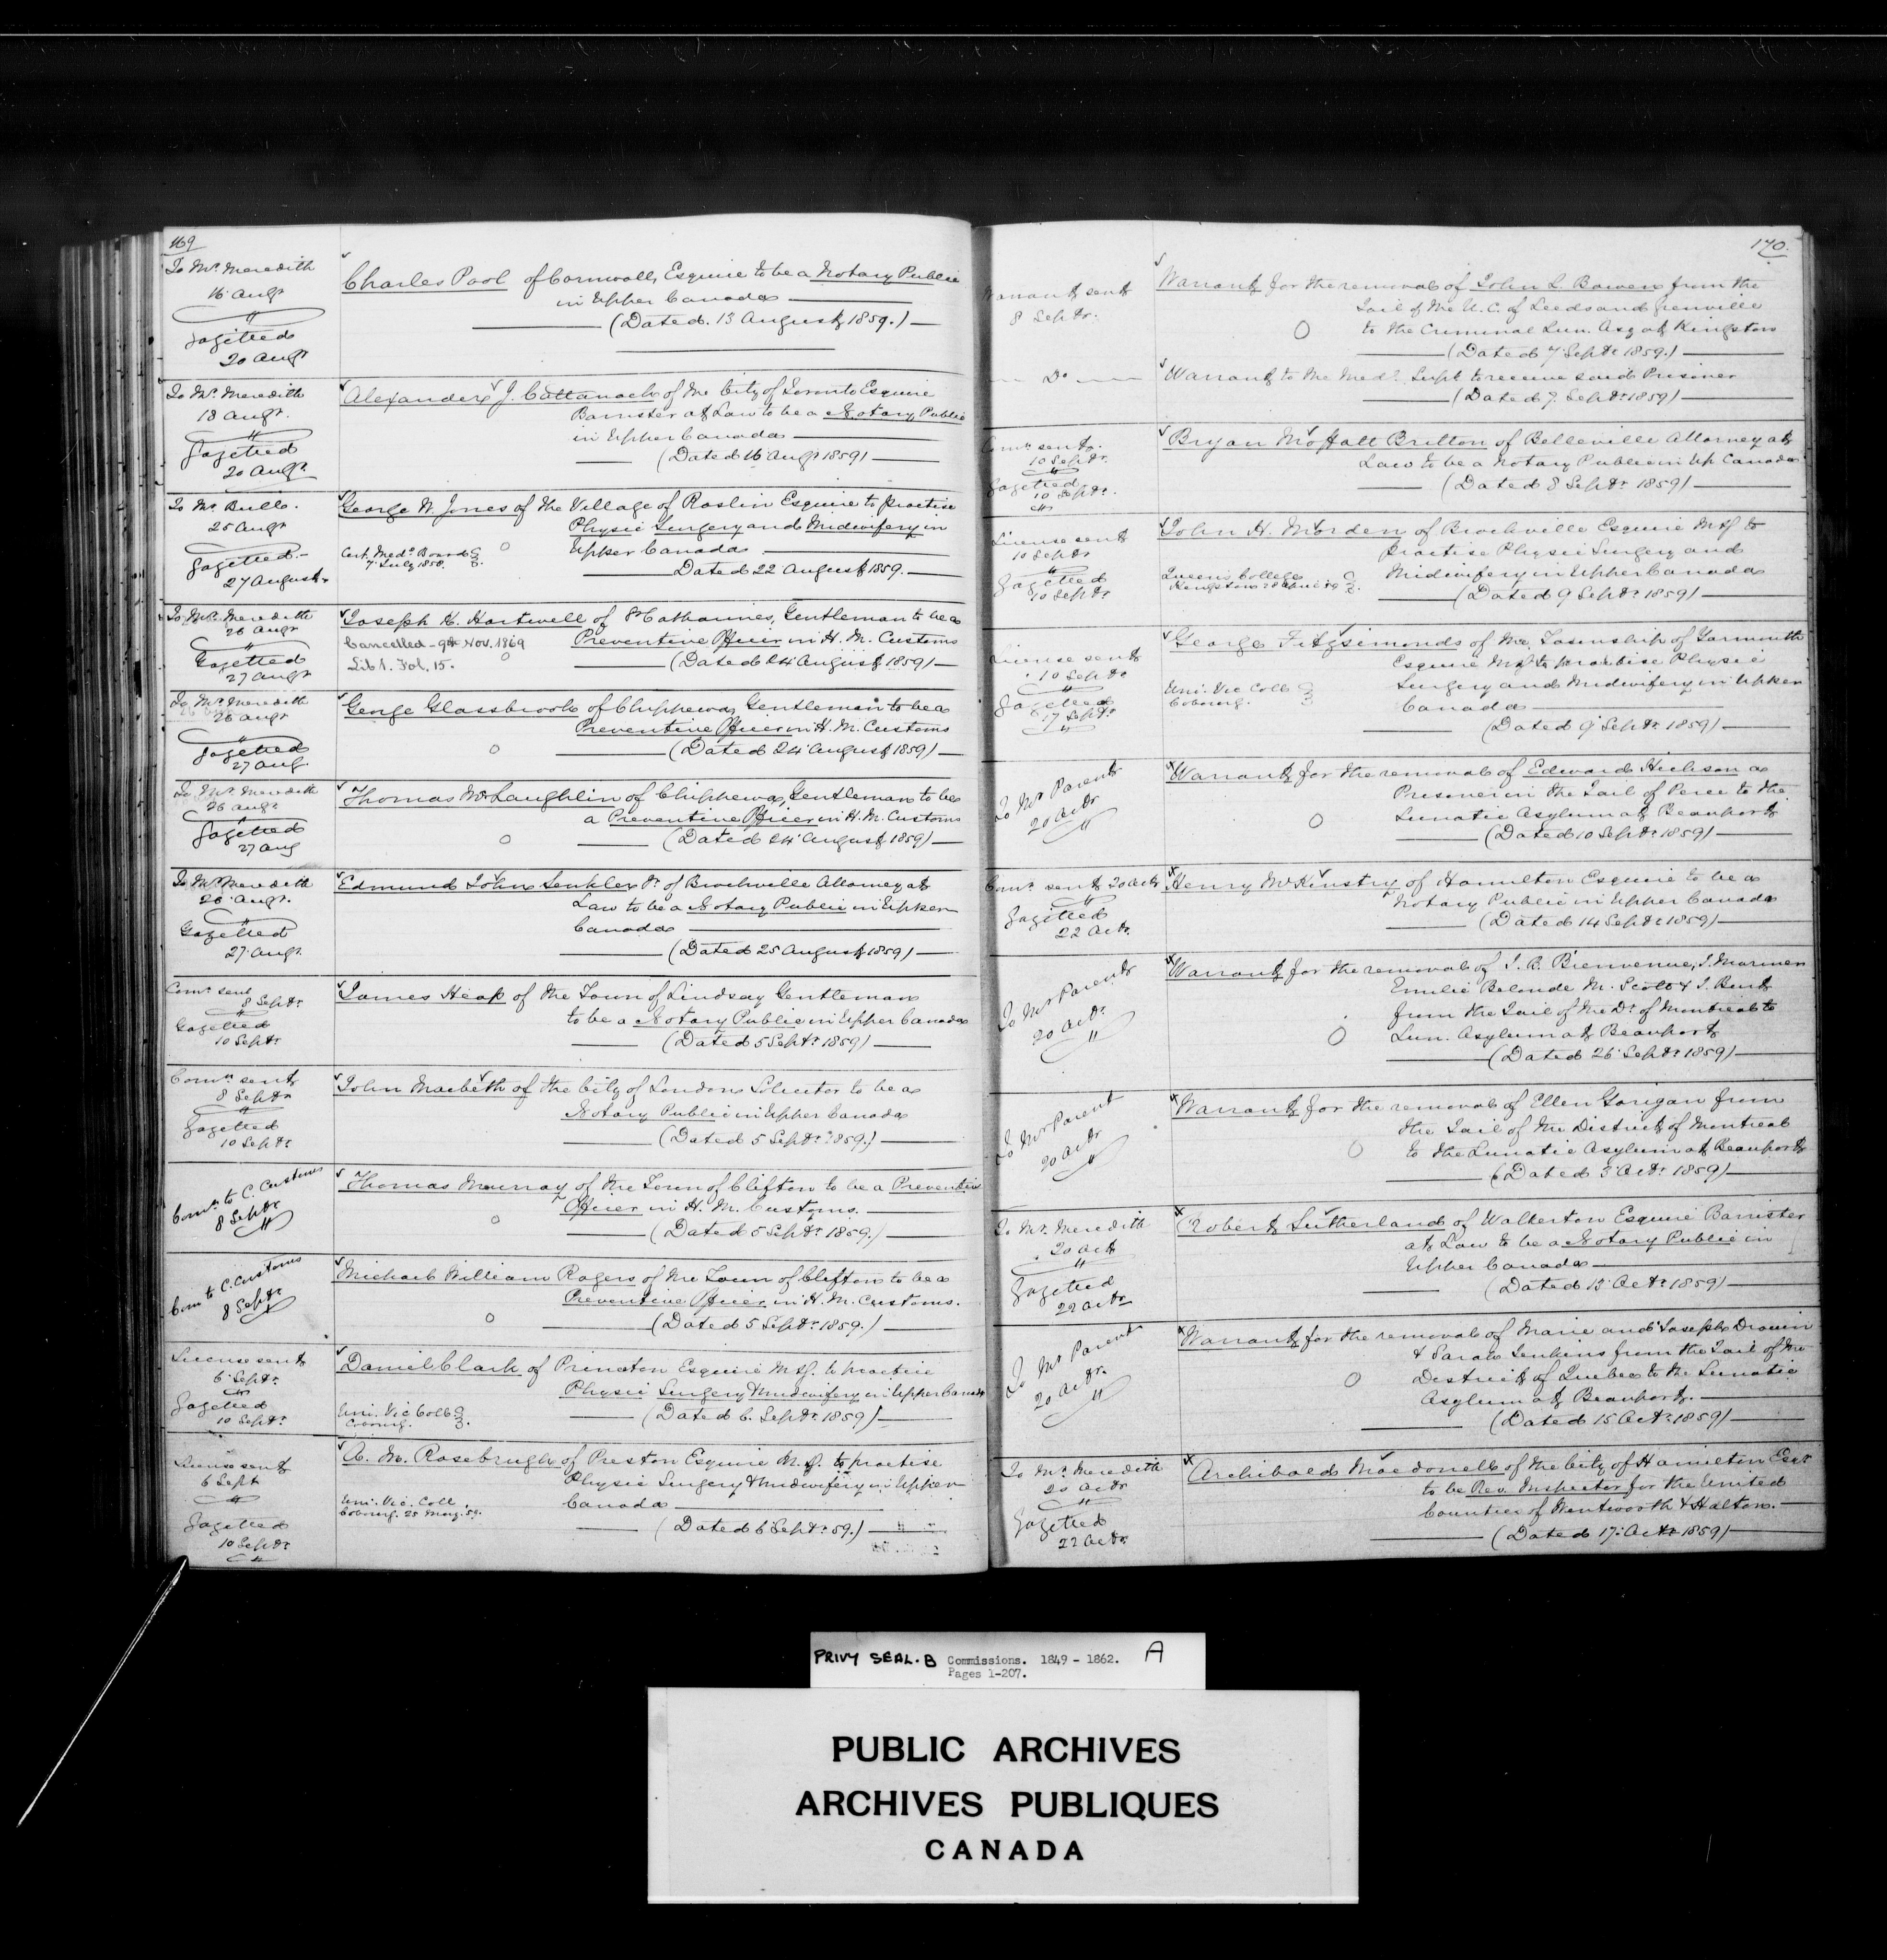 169
To Mr. Meredith
16 Augt
"
Gazetted
20 Augt
Charles Pool of Cornwall, Esquire to be a Notary Public
in Upper Canada
(Dated. 13 August 1859.)
To Mr. Meredith
18 Augt.
"
Gazetted
20 Augt.
Alexander J. Cattanach of the City of Toronto Esquire
Barrister at Law to be a Notary Public
in Upper Canada
(Dated 16 Augt 1859)
To Mr. Bull.
25 Augt
Gazetted.
27 August
George N. Jones of the Village of Roslin Esquire to practise
Physic Surgery and Midwifery in
Upper Canada
Cert. Medl. Board
7 July 1858.
Dated 22 August 1859.
To Mr. Meredith
26 Augt
"
Gazetted
27 Augt
Joseph H. Hartwell of St Catharines, Gentleman to be a
Preventive Officer in H. M. Customs
Cancelled - 9th Nov. 1869
Lib 1. Fol. 15.
(Dated 24 August 1859)
To Mr. Meredith
26 Augt
"
Gazetted
27 Aug.
George Glassbrook of Chippewa, Gentleman to be a
Preventive Officer in H. M. Customs
(Dated 24 August 1859)
To Mr. Meredith
26 Augt
"
Gazetted
27 Aug
Thomas McLaughlin of Chippewa, Gentleman to be
a Preventive Officer in H. M. Customs
(Dated 24 August 1859)
To Mr. Meredith
26 Augt.
Gazetted
27 Augt.
Edmund John Senkler Jr. of Brockville Attorney at
Law to be a Notary Public in Upper
Canada
(Dated 25 August 1859)
Comn. sent
8 Septr
"
Gazetted
10 Septr
James Heap of the Town of Lindsay Gentleman
to be a Notary Public in Upper Canada
(Dated 5 Septr. 1859)
Comn. sent
8 Septr
"
Gazetted
10 Septr
John Macbeth of the City of London Solicitor to be a
Notary Public in Upper Canada
(Dated 5 Septr. 1859.)
Comn. to C. Customs
8 Septr
"
Thomas Murray of the Town of Clifton to be a Preventive
Officer in H. M. Customs.
(Dated 5 Septr. 1859.)
Comn to C. Customs
8 Septr
Michael William Rogers of the Town of Clifton to be a
Preventive Officer in H. M. Customs.
(Dated 5 Septr. 1859.)
License sent
6 Septr.
"
Gazetted
10 Septr.
Daniel Clark of Princeton Esquire M.D. to practice
Physic Surgery & Midwifery in Upper Canada
Uni. Vic Coll
Cobourg.
(Dated 6. Septr. 1859)
License sent
6 Sept
"
Gazetted
10 Septr
"
A. M. Rosebrugh of Preston Esquire M.D. to practise
Physic Surgery & Midwifery in Upper
Canada
Uni. Vic. Coll.
Cobourg. 25 May. 59.
(Dated 6 Septr. 59.)
170.
Warrant sent
8 Septr.
Warrant for the removal of John L. Bowen from the
Jail of the U. C. of Leeds and Grenville
to the Criminal Lun. Asy at Kingston
(Dated 7 Septr 1859.)
Do
Warrant to the Medl. Supt to receive said Prisoner
(Dated 7. Septr. 1859)
Comn sent.
10 Septr.
"
Gazetted
10 Septr.
"
Bryan Moffatt Britton of Belleville Attorney at
Law to be a Notary Public in Up Canada
(Dated 8 Septr. 1859)
License sent
10 Septr
"
Gazetted
10 Septr
John H. Morden of Brockville Esquire M.D. to
practise Physic Surgery and
Midwifery in Upper Canada
Queen's College
Kingston
(Dated 9 Septr. 1859)
License sent
10 Septr
"
Gazetted
17 Septr.
"
George Fitzsimonds of the Township of Yarmouth
Esquire M.D. to practise Physic
Surgery and Midwifery in Upper
Canada
Uni. Vic Coll
Cobourg.
(Dated 9 Septr. 1859)
To Mr Parent
20 Octr
"
Warrant for the removal of Edward Hickson a
Prisoner in the Jail of Perce to the
Lunatic Asylum at Beauport
(Dated 10 Septr. 1859)
Comn. sent 20 Octr
"
Gazetted
22 Octr.
Henry McKinstry of Hamilton Esquire to be a
Notary Public in Upper Canada
(Dated 14 Septr 1859)
To Mr Parent
20 Octr.
"
Warrant for the removal of J. R. Bienvenue, J. Marmen
Emilie Belonde M. Scott & J. Bent
from the Jail of the Dt. of Montreal to
Lun. Asylum at Beauport
(Dated 26 Septr. 1859)
To Mr Parent
20 Octr
"
Warrant for the removal of Ellen Garigan from
the Jail of the District of Montreal
to the Lunatic Asylum at Beauport
(Dated 3 Octr. 1859)
To Mr. Meredith
20 Octr
"
Gazetted
22 Octr
Robert Sutherland of Walkerton Esquire Barrister
at Law to be a Notary Public in
Upper Canada
(Dated 13 Octr. 1859)
To Mr Parent
20 Octr.
"
Warrant for the removal of Marie and Joseph Drouin
& Sarah Jenkins from the Jail of the
District of Quebec to the Lunatic
Asylum at Beauport.
(Dated 15 Octr. 1859)
To Mr. Meredith
20 Octr
"
Gazetted
22 Octr
Archibald Macdonell of the City of Hamilton Esqr
to be Rev. Inspector for the United
Counties of Wentworth & Halton.
(Dated 17 Octr 1859)
PRIVY SEAL. B Commissions. 1849 - 1862. A
Pages 1-207.
PUBLIC ARCHIVES
ARCHIVES PUBLIQUES
CANADA